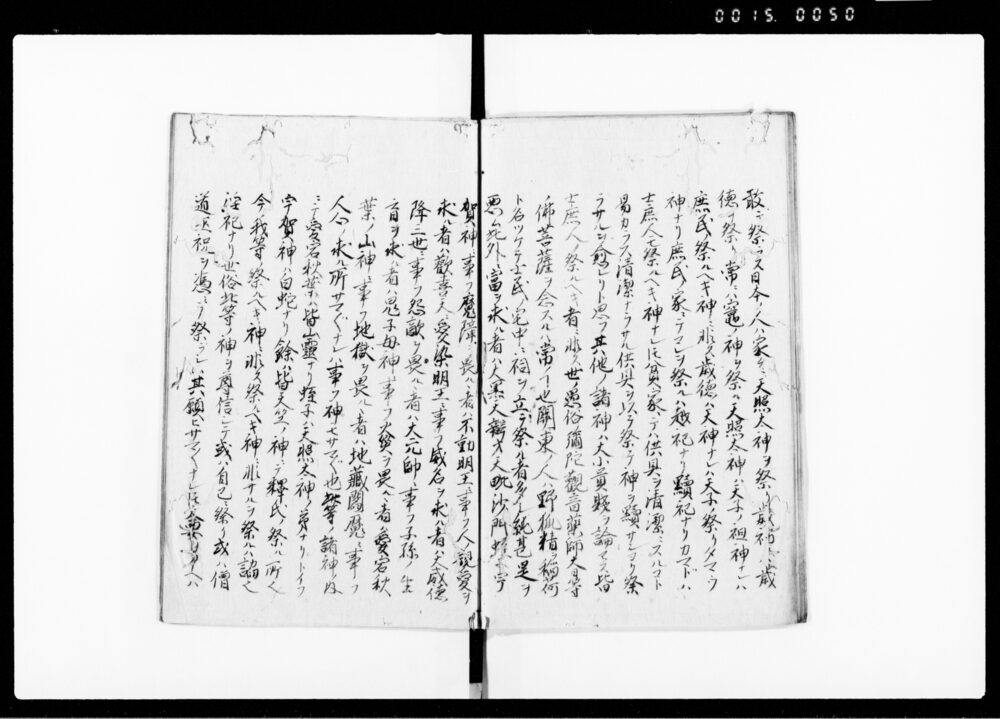 0015.0050
敢テ祭ラス日本ノ人ハ家々ニ天照太神ヲ祭リ歳初ニハ歳
徳ヲ祭リ常ニハ竈ノ神ヲ祭ル天照太神ハ天子ノ祖神ナレハ
庶民祭ルヘキ神ニ非ス歳徳ハ天神ナレハ天子ノ祭リタマフ
神ナリ庶民ノ家ニテマレヲ祭ルハ越祀ナリ黷祀ナリカマドハ
士庶人モ祭ルヘキ神ナレ𪜈貧家ニテハ供具ヲ清潔ニスルコト
易カラス清潔ナラサル供具ヲ以テ祭テ神ヲ黷サンヨリ祭
ラサルニシカレリト思フ其他ノ諸神ハ大小貴賤ヲ論セス皆
士庶人ノ祭ルヘキ者ニ非ス世ノ愚俗彌陀觀音藥師大日等
佛菩薩ヲ念スルハ常ノ丁也關東ノ人ハ野狐精ヲ稲荷
ト名ツケテ士民ノ宅中ニ祠ヲ立テ祭ル者多シ統甚足ヲ
悪ム此外ニ富ヲ求ル者ハ大黒大辯才天毗沙門蛭子宇
賀ノ神ニ事フ魔障ヲ畏ルヽ者ハ不動明王ニ事フ人ノ親愛ヲ
求ル者ハ歡喜天愛染明王ニ事フ威名ヲ求ル者ハ大威徳
降三世ニ事フ怨敵ヲ畏ルヽ者ハ大元帥ニ事フ子孫ノ生
育ヲ求ル者ハ鬼子母神ニ事フ火災ヲ畏ルヽ者ハ愛宕秋
葉ノ山神ニ事フ地獄ヲ畏ルヽ者ハ地藏閻魔ニ事フ
人心ノ求ル所サマ〴〵ナレハ事フル神モサマ〴〵也此等ノ諸神ノ内
ニテ愛宕秋葉ハ皆山靈ナリ蛭子ハ天照太神ノ弟ナリトイフ
宇賀ノ神ハ白蛇ナリ餘ハ皆天竺ノ神ニテ釋氏ノ祭ル所ナリ
今我等祭ルヘキ神ニ非ス祭ルヘキ神ニ非サルヲ祭ルハ諂也
淫祀ナリ世俗此等ノ神ヲ尊信シテ或ハ自己ニ祭リ或ハ僧
道巫祝ヲ憑ミテ祭ラシム其願ヒサマ〴〵ナレ𪜈論ヲタヘハ